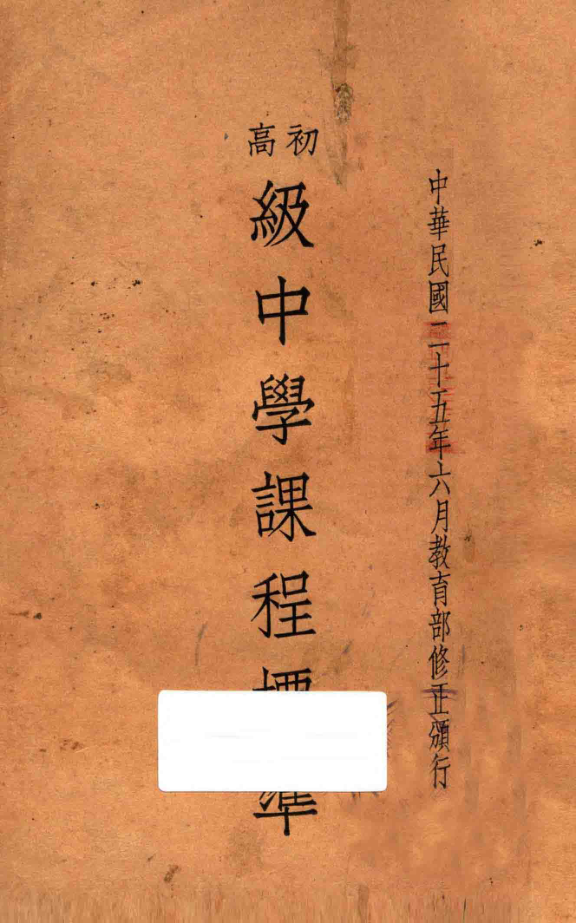 中華民國二十五年六月教育部修正頒行
初高
級中學課程標準